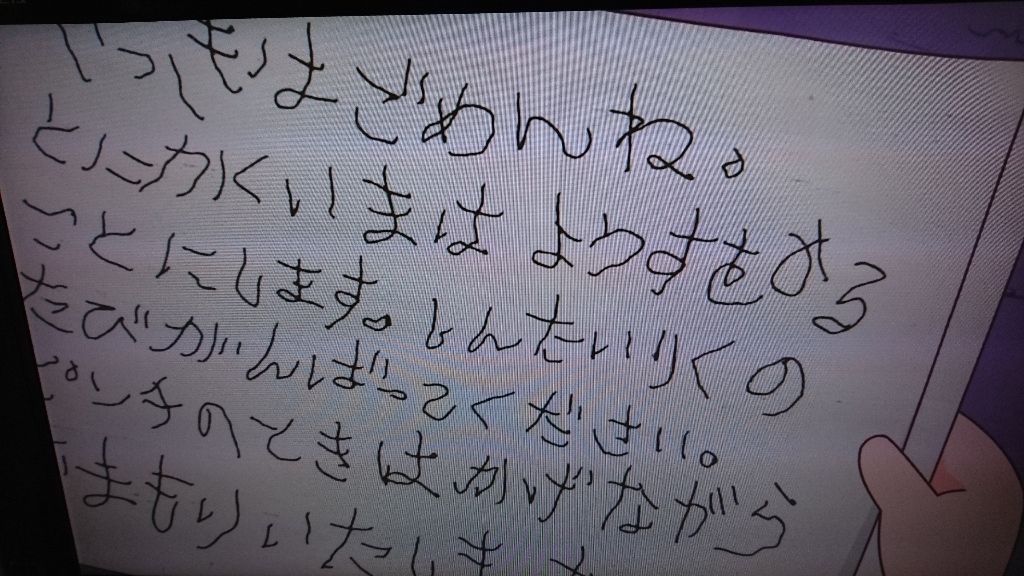 ごめんね。
とにかくいまはようすをみる
ことにします。しんたいりくの
たびがんばってください。
ピンチのときはかげながら
まもりいたしま